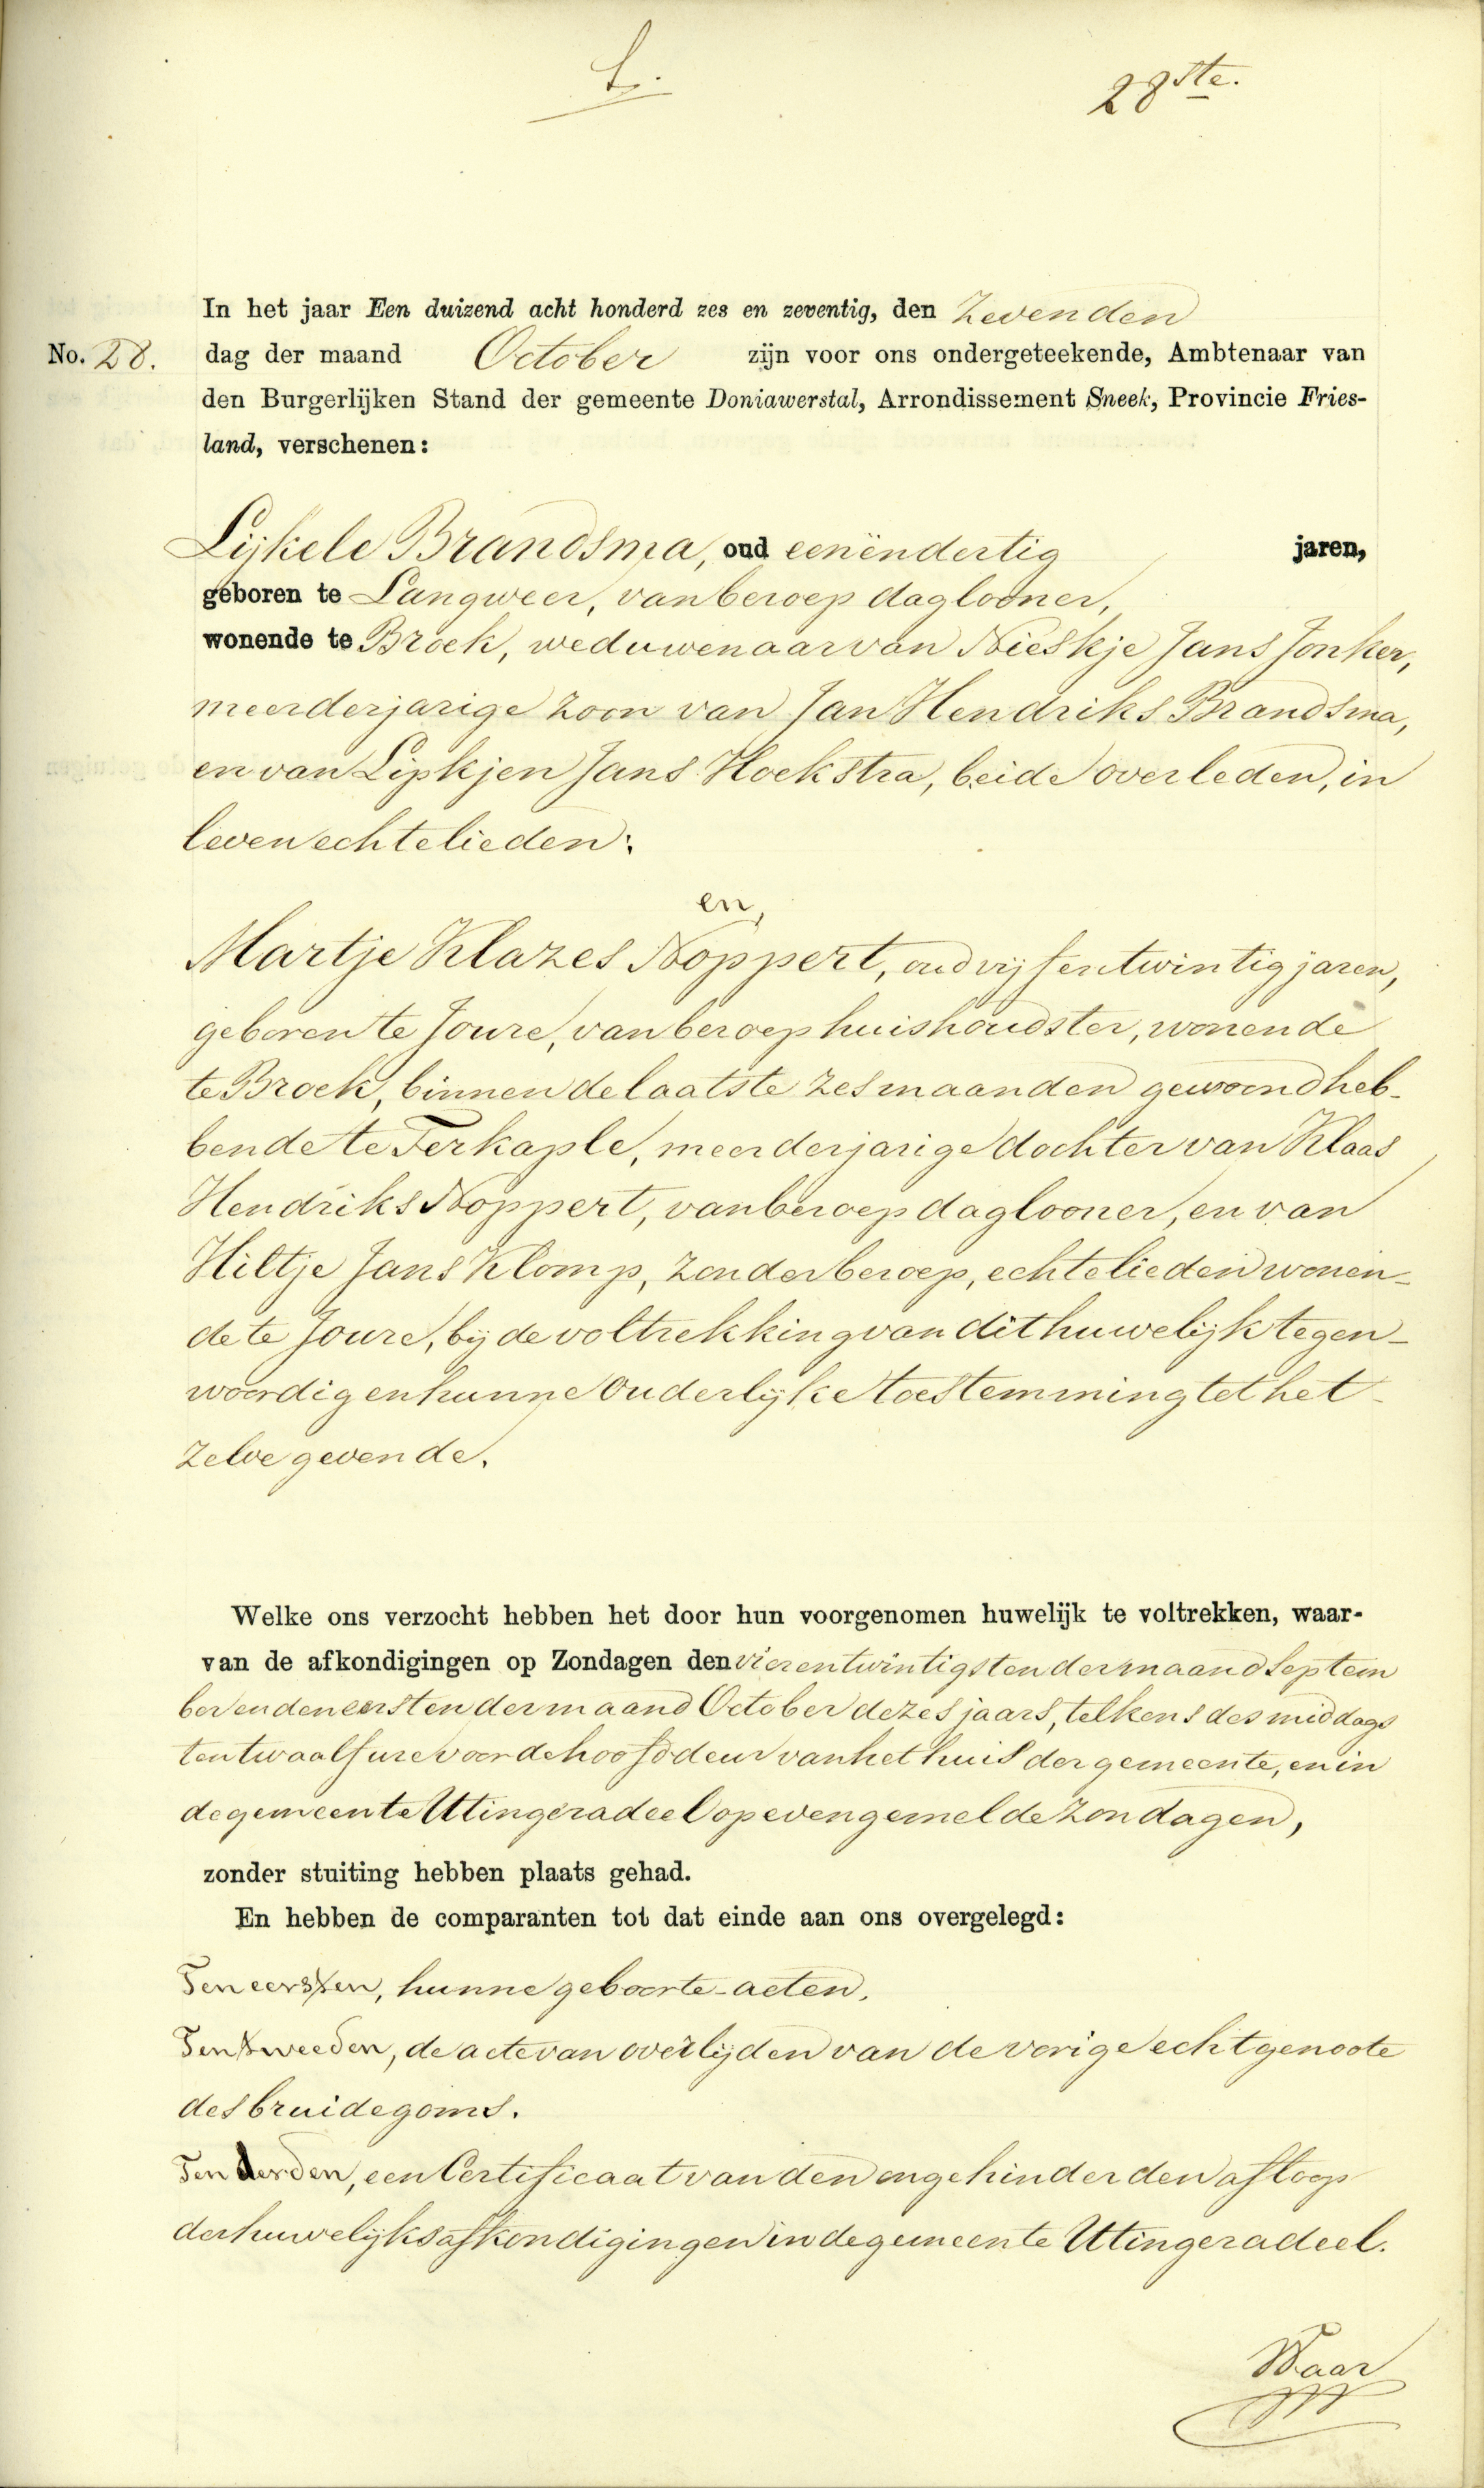 28ste.
In het jaar Een duizend acht honderd zes en zeventig, den Zevenden
No. 28. dag der maand October zijn voor ons ondergeteekende, Ambtenaar van
den Burgerlijken Stand der gemeente Doniawerstal, Arrondissement Sneek, Provincie Fries-
land, verschenen:
Lijkele Brandsma, oud eenëndertig jaren,
geboren te Langweer, van beroep daglooner,
wonende te Broek, weduwenaar van Nieskje Jans Jonker,
meerderjarige zoon van Jan Hendriks Brandsma,
en van Lipkjen Jans Hoekstra, beide overleden, in
leven echtelieden;
en,
Martje Klazes Noppert, oud vijfentwintig jaren,
geboren te Joure, van beroep huishoudster, wonende
te Broek, binnen de laatste zes maanden gewoond heb-
bende te Terkaple, meerderjarige dochter van Klaas
Hendriks Noppert, van beroep daglooner, en van
Hiltje Jans Klomp, zonder beroep, echtelieden wonen-
de te Joure, bij de voltrekking van dit huwelijk tegen-
woordig en hunne ouderlijke toestemming tot het-
zelve gevende.
Welke ons verzocht hebben het door hun voorgenomen huwelijk te voltrekken, waar-
van de afkondigingen op Zondagen den vierentwintigsten der maand Septem
ber en den eersten der maand October dezes jaars, telkens des middags
ten twaalf ure voor de hoofddeur van het huis der gemeente, en in
de gemeente Utingeradeel op evengemelde zondagen,
zonder stuiting hebben plaats gehad.
En hebben de comparanten tot dat einde aan ons overgelegd:
Ten eersten, hunne geboorte-acten.
Ten tweeden, de acte van overlijden van de vorige echtgenoote
des bruidegoms.
Ten derden, een Certificaat van den ongehinderden afloop
der huwelijksafkondigingen in de gemeente Utingeradeel.
Waar